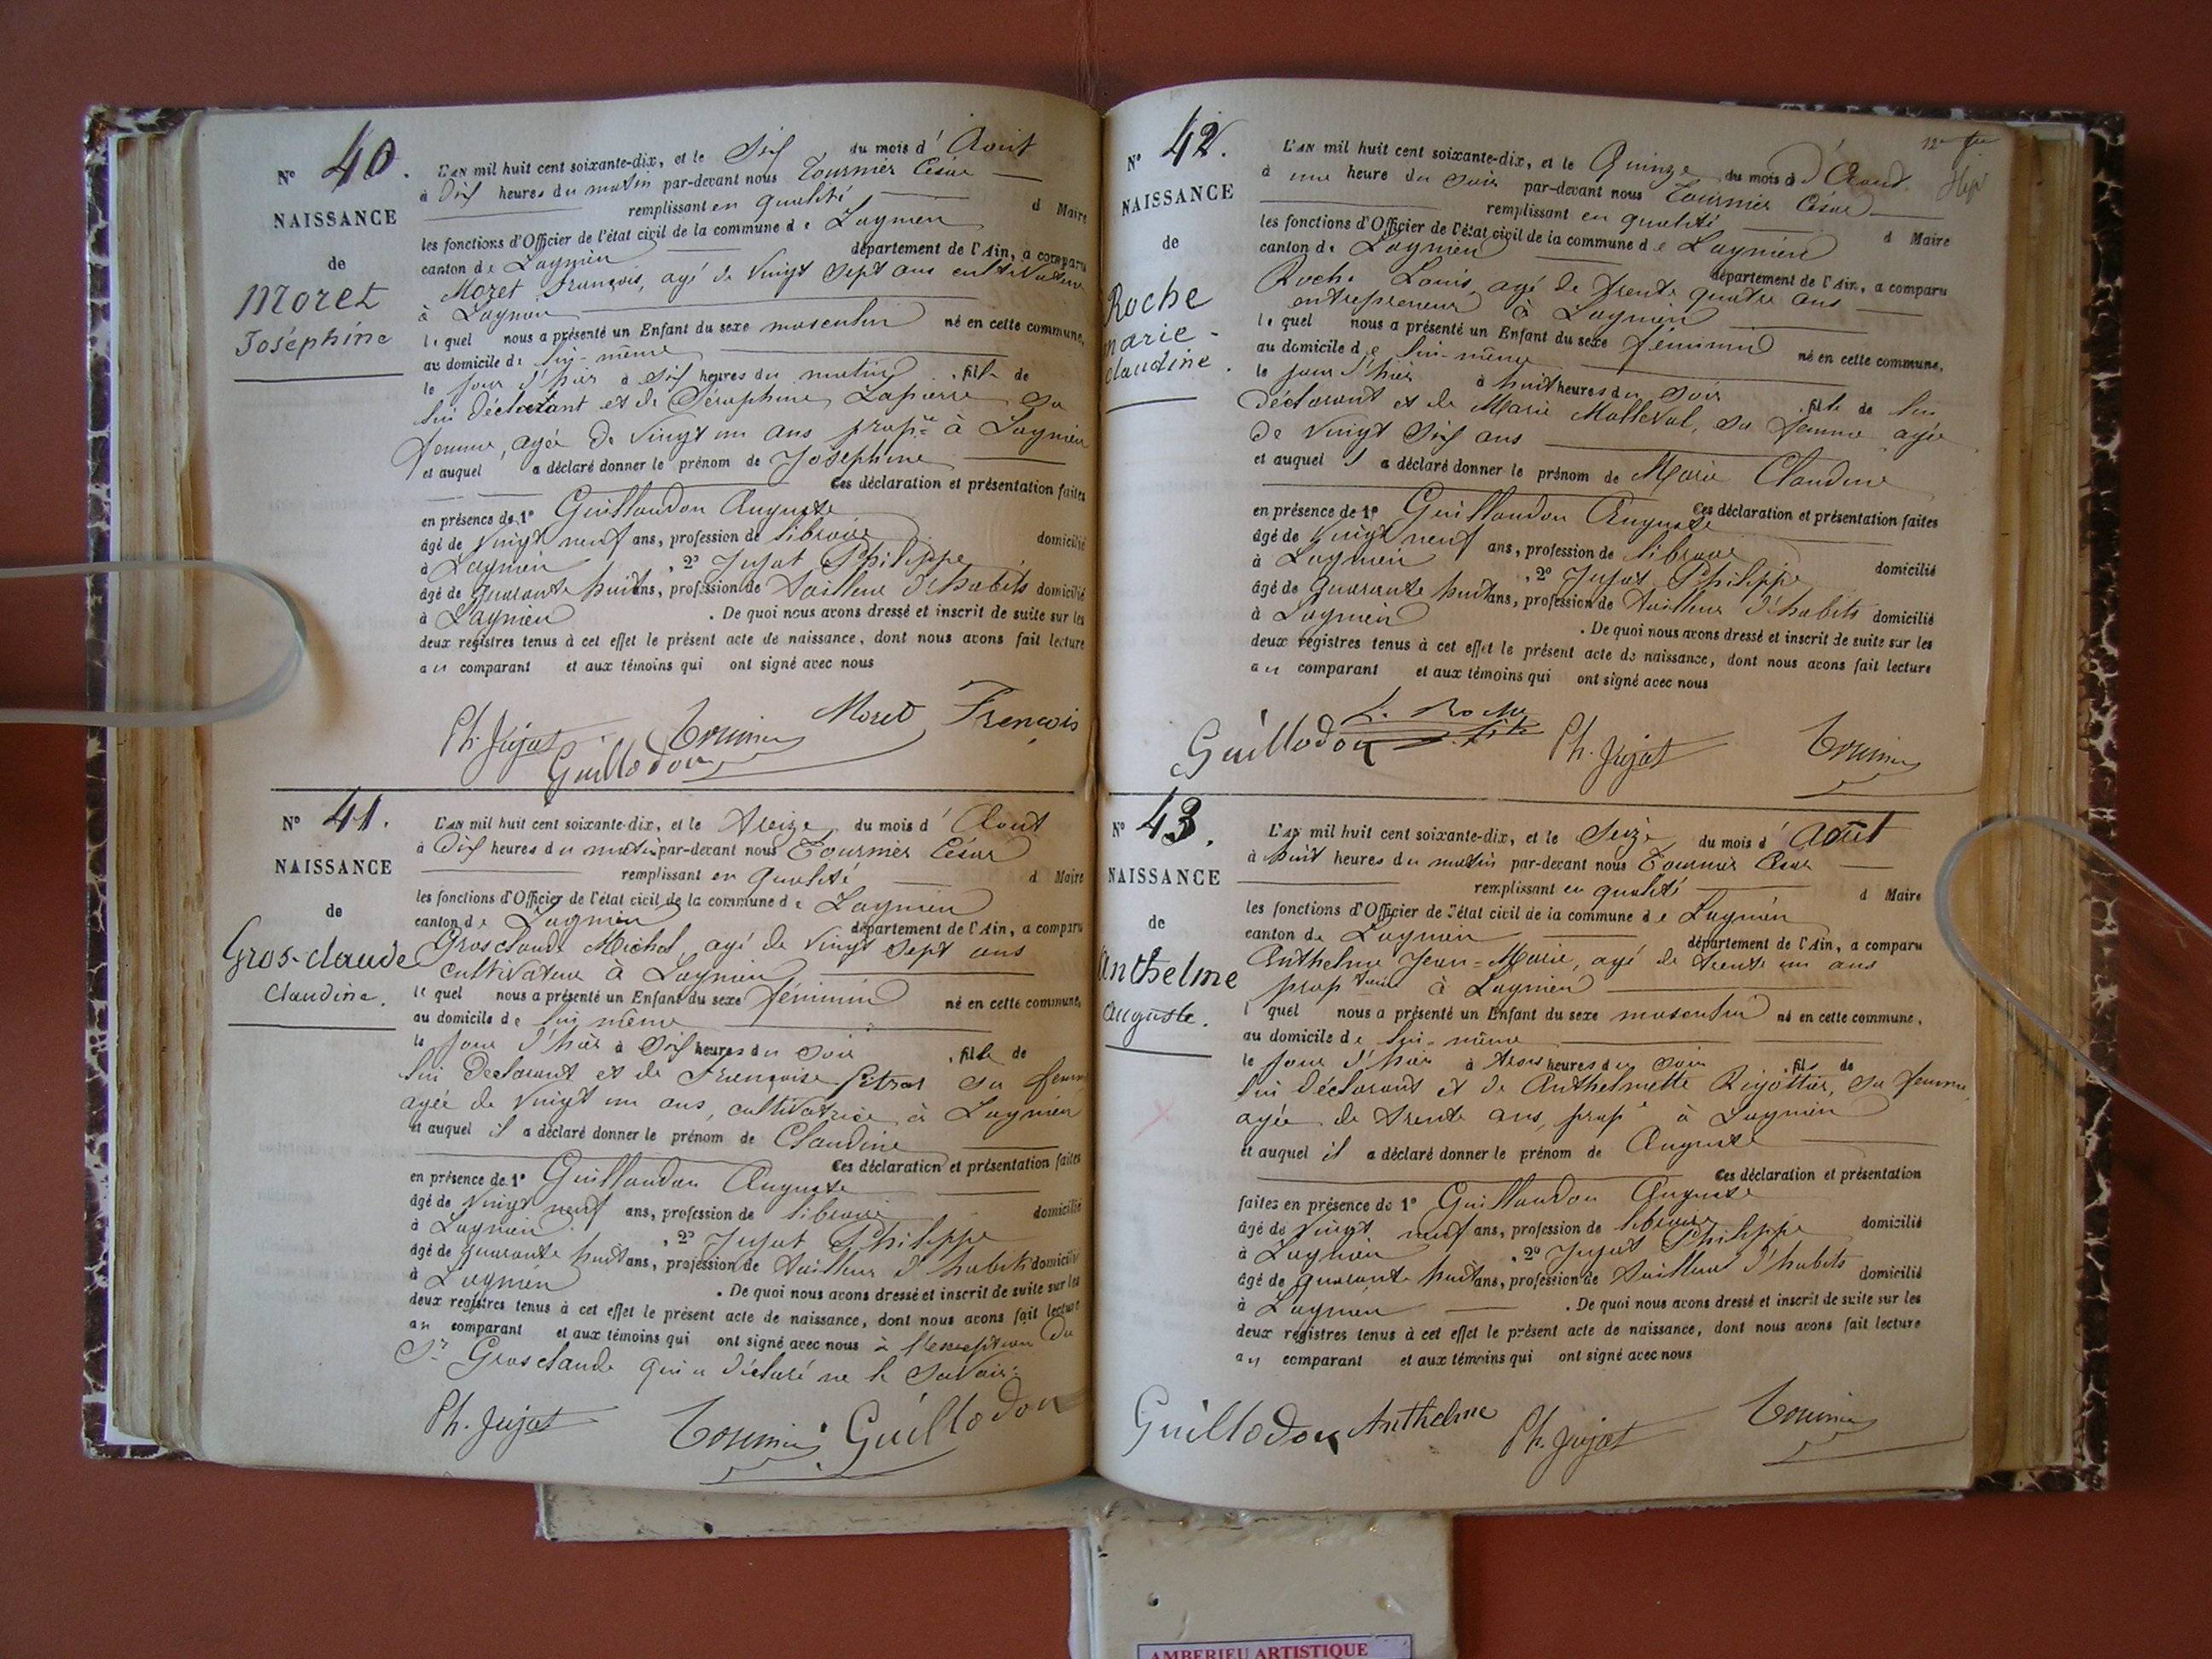 N° 40.
NAISSANCE
de
Moret
Joséphine
L'AN mil huit cent soixante-dix, et le Dix du mois d'Août
à Dix heures du matin par-devant nous Tournier César
remplissant en qualité d Maire
les fonctions d'Officier de l'état civil de la commune de Lagnieu
canton de Lagnieu département de l'Ain, a comparu
Moret François, agé de vingt sept ans cultivateur
à Lagnieu
lequel nous a présenté un Enfant du sexe masculin né en cette commune,
au domicile de lui-même
le jour d'hier à six heures du matin, fille de
lui déclarant et de Séraphine Lapierre sa
femme, agée de vingt un ans prop.re à Lagnieu
et auquel a déclaré donner le prénom de Joséphine
Ces déclaration et présentation faites
en présence de 1° Guillaudon Auguste
âgé de vingt neuf ans, profession de libraire domicilié
à Lagnieu, 2° Jujat Philippe
âgé de quarante huit ans, profession de tailleur d'habits domicilié
à Lagnieu. De quoi nous avons dressé et inscrit de suite sur les
deux registres tenus à cet effet le présent acte de naissance, dont nous avons fait lecture
au comparant et aux témoins qui ont signé avec nous
Ph. Jujat Tournier Moret François
Guillodon
N° 41.
NAISSANCE
de
Gros-claude
Claudine.
L'AN mil huit cent soixante-dix, et le treize du mois d'Août
à Dix heures du matin par-devant nous Tournier César
remplissant en qualité d Maire
les fonctions d'Officier de l'état civil de la commune de Lagnieu
canton de Lagnieu département de l'Ain, a comparu
Grosclaude Michel, agé de vingt sept ans
cultivateur à Lagnieu
lequel nous a présenté un Enfant du sexe féminin né en cette commune,
au domicile de lui même
le jour d'hier à six heures du soir, fille de
lui déclarant et de Françoise sa femme
agée de vingt un ans, cultivatrice à Lagnieu
et auquel il a déclaré donner le prénom de Claudine
Ces déclaration et présentation faites
en présence de 1° Guillaudon Auguste
âgé de vingt neuf ans, profession de libraire domicilié
à Lagnieu, 2° Jujat Philippe
âgé de quarante huit ans, profession de tailleur d'habits domicilié
à Lagnieu. De quoi nous avons dressé et inscrit de suite sur les
deux registres tenus à cet effet le présent acte de naissance, dont nous avons fait lecture
au comparant et aux témoins qui ont signé avec nous à l'exception du
Sr Grosclaude qui a déclaré ne le savoir.
Ph. Jujat Tournier Guillodon
N° 42.
NAISSANCE
de
Roche
marie-
claudine.
L'AN mil huit cent soixante-dix, et le Quinze du mois d'Août
à une heure du soir par-devant nous Tournier César
remplissant en qualité d Maire
les fonctions d'Officier de l'état civil de la commune de Lagnieu
canton de Lagnieu département de l'Ain, a comparu
Roche Louis, agé de trente quatre ans
entrepreneur à Lagnieu
lequel nous a présenté un Enfant du sexe féminin né en cette commune,
au domicile de lui-même
le jour d'hier à huit heures du soir fille de lui
déclarant et de Marie Malleval, sa femme agée
de vingt six ans
et auquel il a déclaré donner le prénom de Marie Claudine
Ces déclaration et présentation faites
en présence de 1° Guillaudon Auguste
âgé de vingt neuf ans, profession de libraire
à Lagnieu, 2° Jujat Philippe domicilié
âgé de quarante huit ans, profession de tailleur d'habits domicilié
à Lagnieu. De quoi nous avons dressé et inscrit de suite sur les
deux registres tenus à cet effet le présent acte de naissance, dont nous avons fait lecture
au comparant et aux témoins qui ont signé avec nous
L. Roche
Guillodon Ph. Jujat Tournier
N° 43.
NAISSANCE
de
Anthelme
Auguste.
L'AN mil huit cent soixante-dix, et le Seize du mois d'Août
à huit heures du matin par-devant nous Tournier César
remplissant en qualité d Maire
les fonctions d'Officier de l'état civil de la commune de Lagnieu
canton de Lagnieu département de l'Ain, a comparu
Anthelme Jean-Marie, agé de trente un ans
prop.taire à Lagnieu
lequel nous a présenté un Enfant du sexe masculin né en cette commune,
au domicile de lui-même
le jour d'hier à trois heures du soir, fils de
lui déclarant et de Anthelmette Rigottier, sa femme,
agée de trente ans, prop.e à Lagnieu
et auquel il a déclaré donner le prénom de Auguste
Ces déclaration et présentation
faites en présence de 1° Guillaudon Auguste
âgé de vingt neuf ans, profession de libraire domicilié
à Lagnieu, 2° Jujat Philippe
âgé de quarante huit ans, profession de tailleur d'habits domicilié
à Lagnieu. De quoi nous avons dressé et inscrit de suite sur les
deux registres tenus à cet effet le présent acte de naissance, dont nous avons fait lecture
au comparant et aux témoins qui ont signé avec nous
Guillodon Anthelme Ph. Jujat Tournier
AMBERIEU ARTISTIQUE